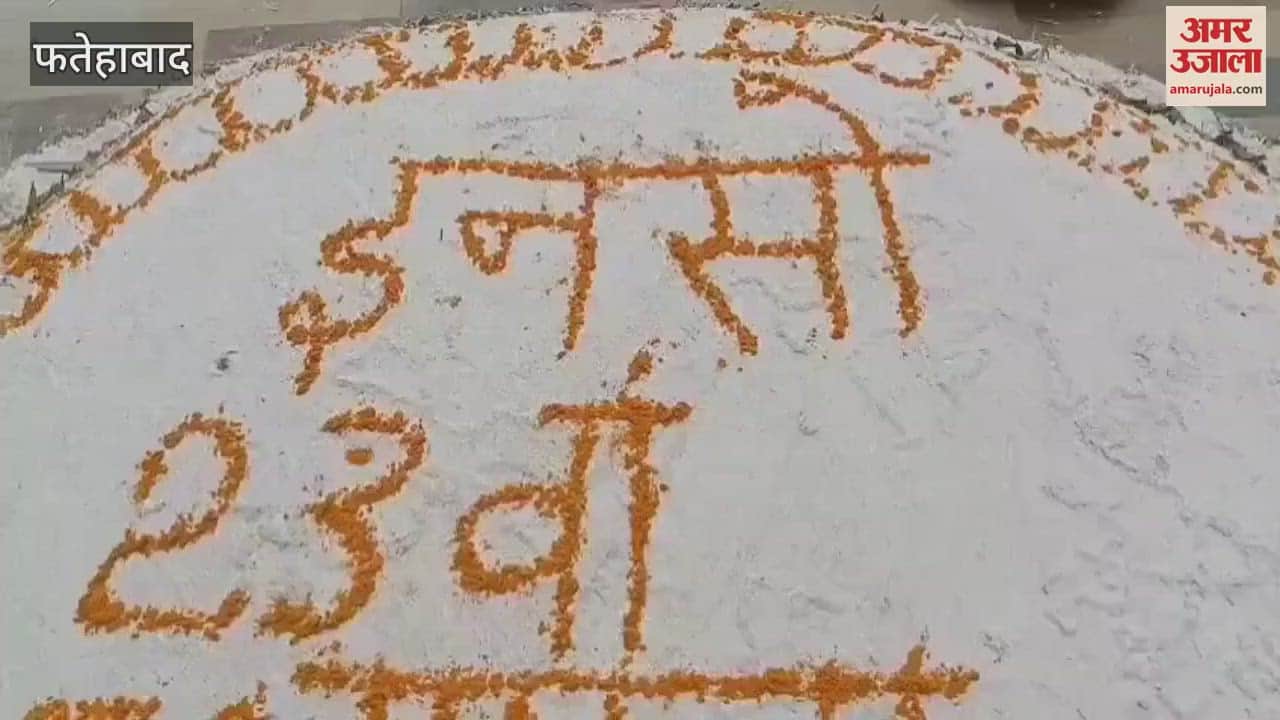 फतेहाबाद
अमर
उजाला
amarujala.com
इनसो
23वां